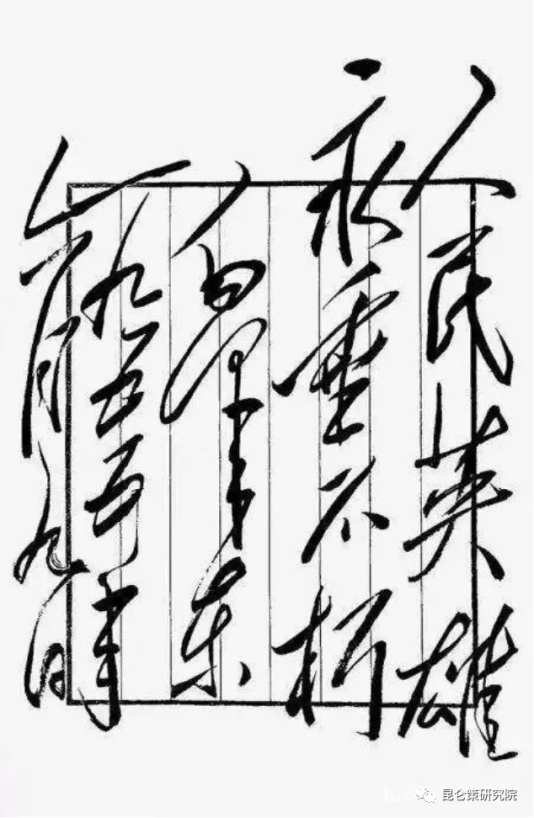 人民英雄
永垂不朽
毛泽东
一九五五年
六月九日
昆仑策研究院